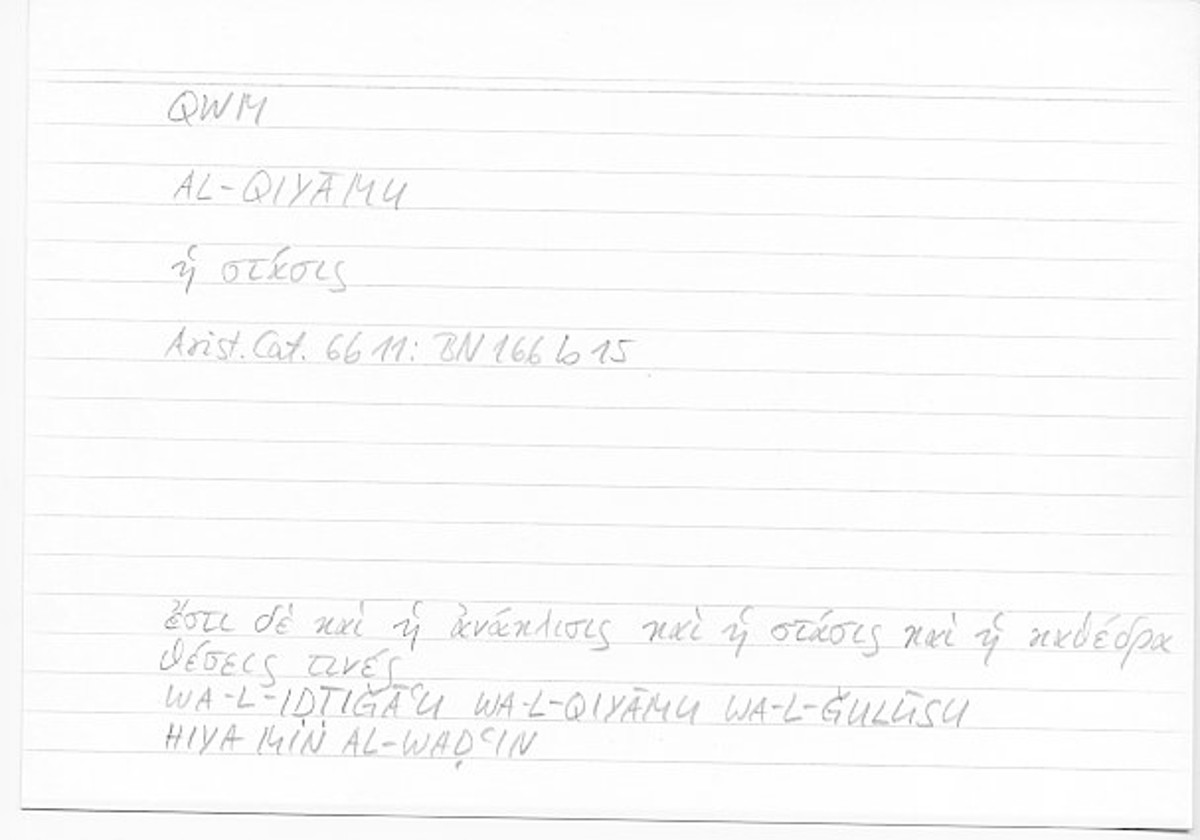 QWM
AL-QIYĀMU
ἡ στάσις
Arist. Cat. 6b 11: BN 166 b 15
ἔστι δὲ καὶ ἡ ἀνάκλισις καὶ ἡ στάσις καὶ ἡ καθέδρα
θέσεις τινές
WA-L-IḌṬIǦĀʿU WA-L-QIYĀMU WA-L-ǦULŪSU
HIYA MIN AL-WAḌʿIN